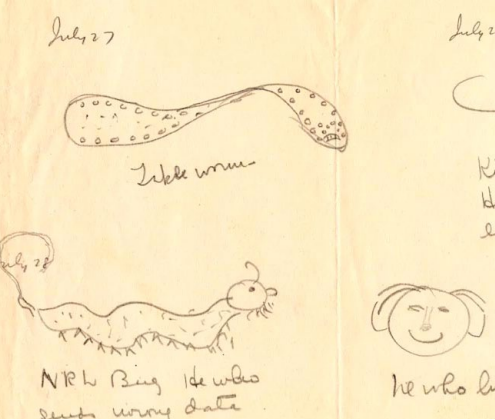 July 27
July 2
worm
July 28
NRL Bug He who
sends wrong data
he who